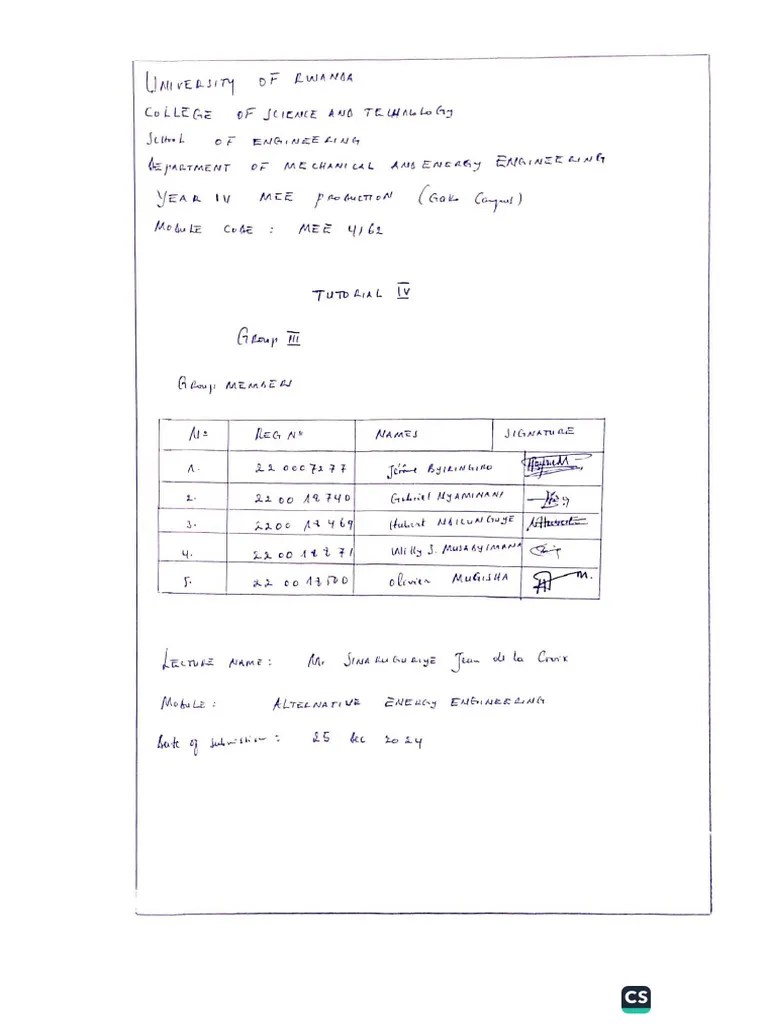 UNIVERSITY OF RWANDA
COLLEGE OF SCIENCE AND TECHNOLOGY
SCHOOL OF ENGINEERING
DEPARTMENT OF MECHANICAL AND ENERGY ENGINEERING
YEAR IV MEE PRODUCTION (Gako Campus)
MODULE CODE : MEE 4162
TUTORIAL IV
Group III
Group MEMBERS
No REG No NAMES SIGNATURE
1. 220007277 Jérôme BYIRINGIRO
2. 2200 18740 Gabriel NYAMINANI
3. 2200 18469 Hubert
4. 22 00 18271 Willy S. MUSABYIMANA
5. 22 00 18500 Olivier MUGISHA
LECTURE NAME: Mr SINARUGURIYE Jean de la Croix
MODULE: ALTERNATIVE ENERGY ENGINEERING
Date of submission: 25 Dec 2024
CS